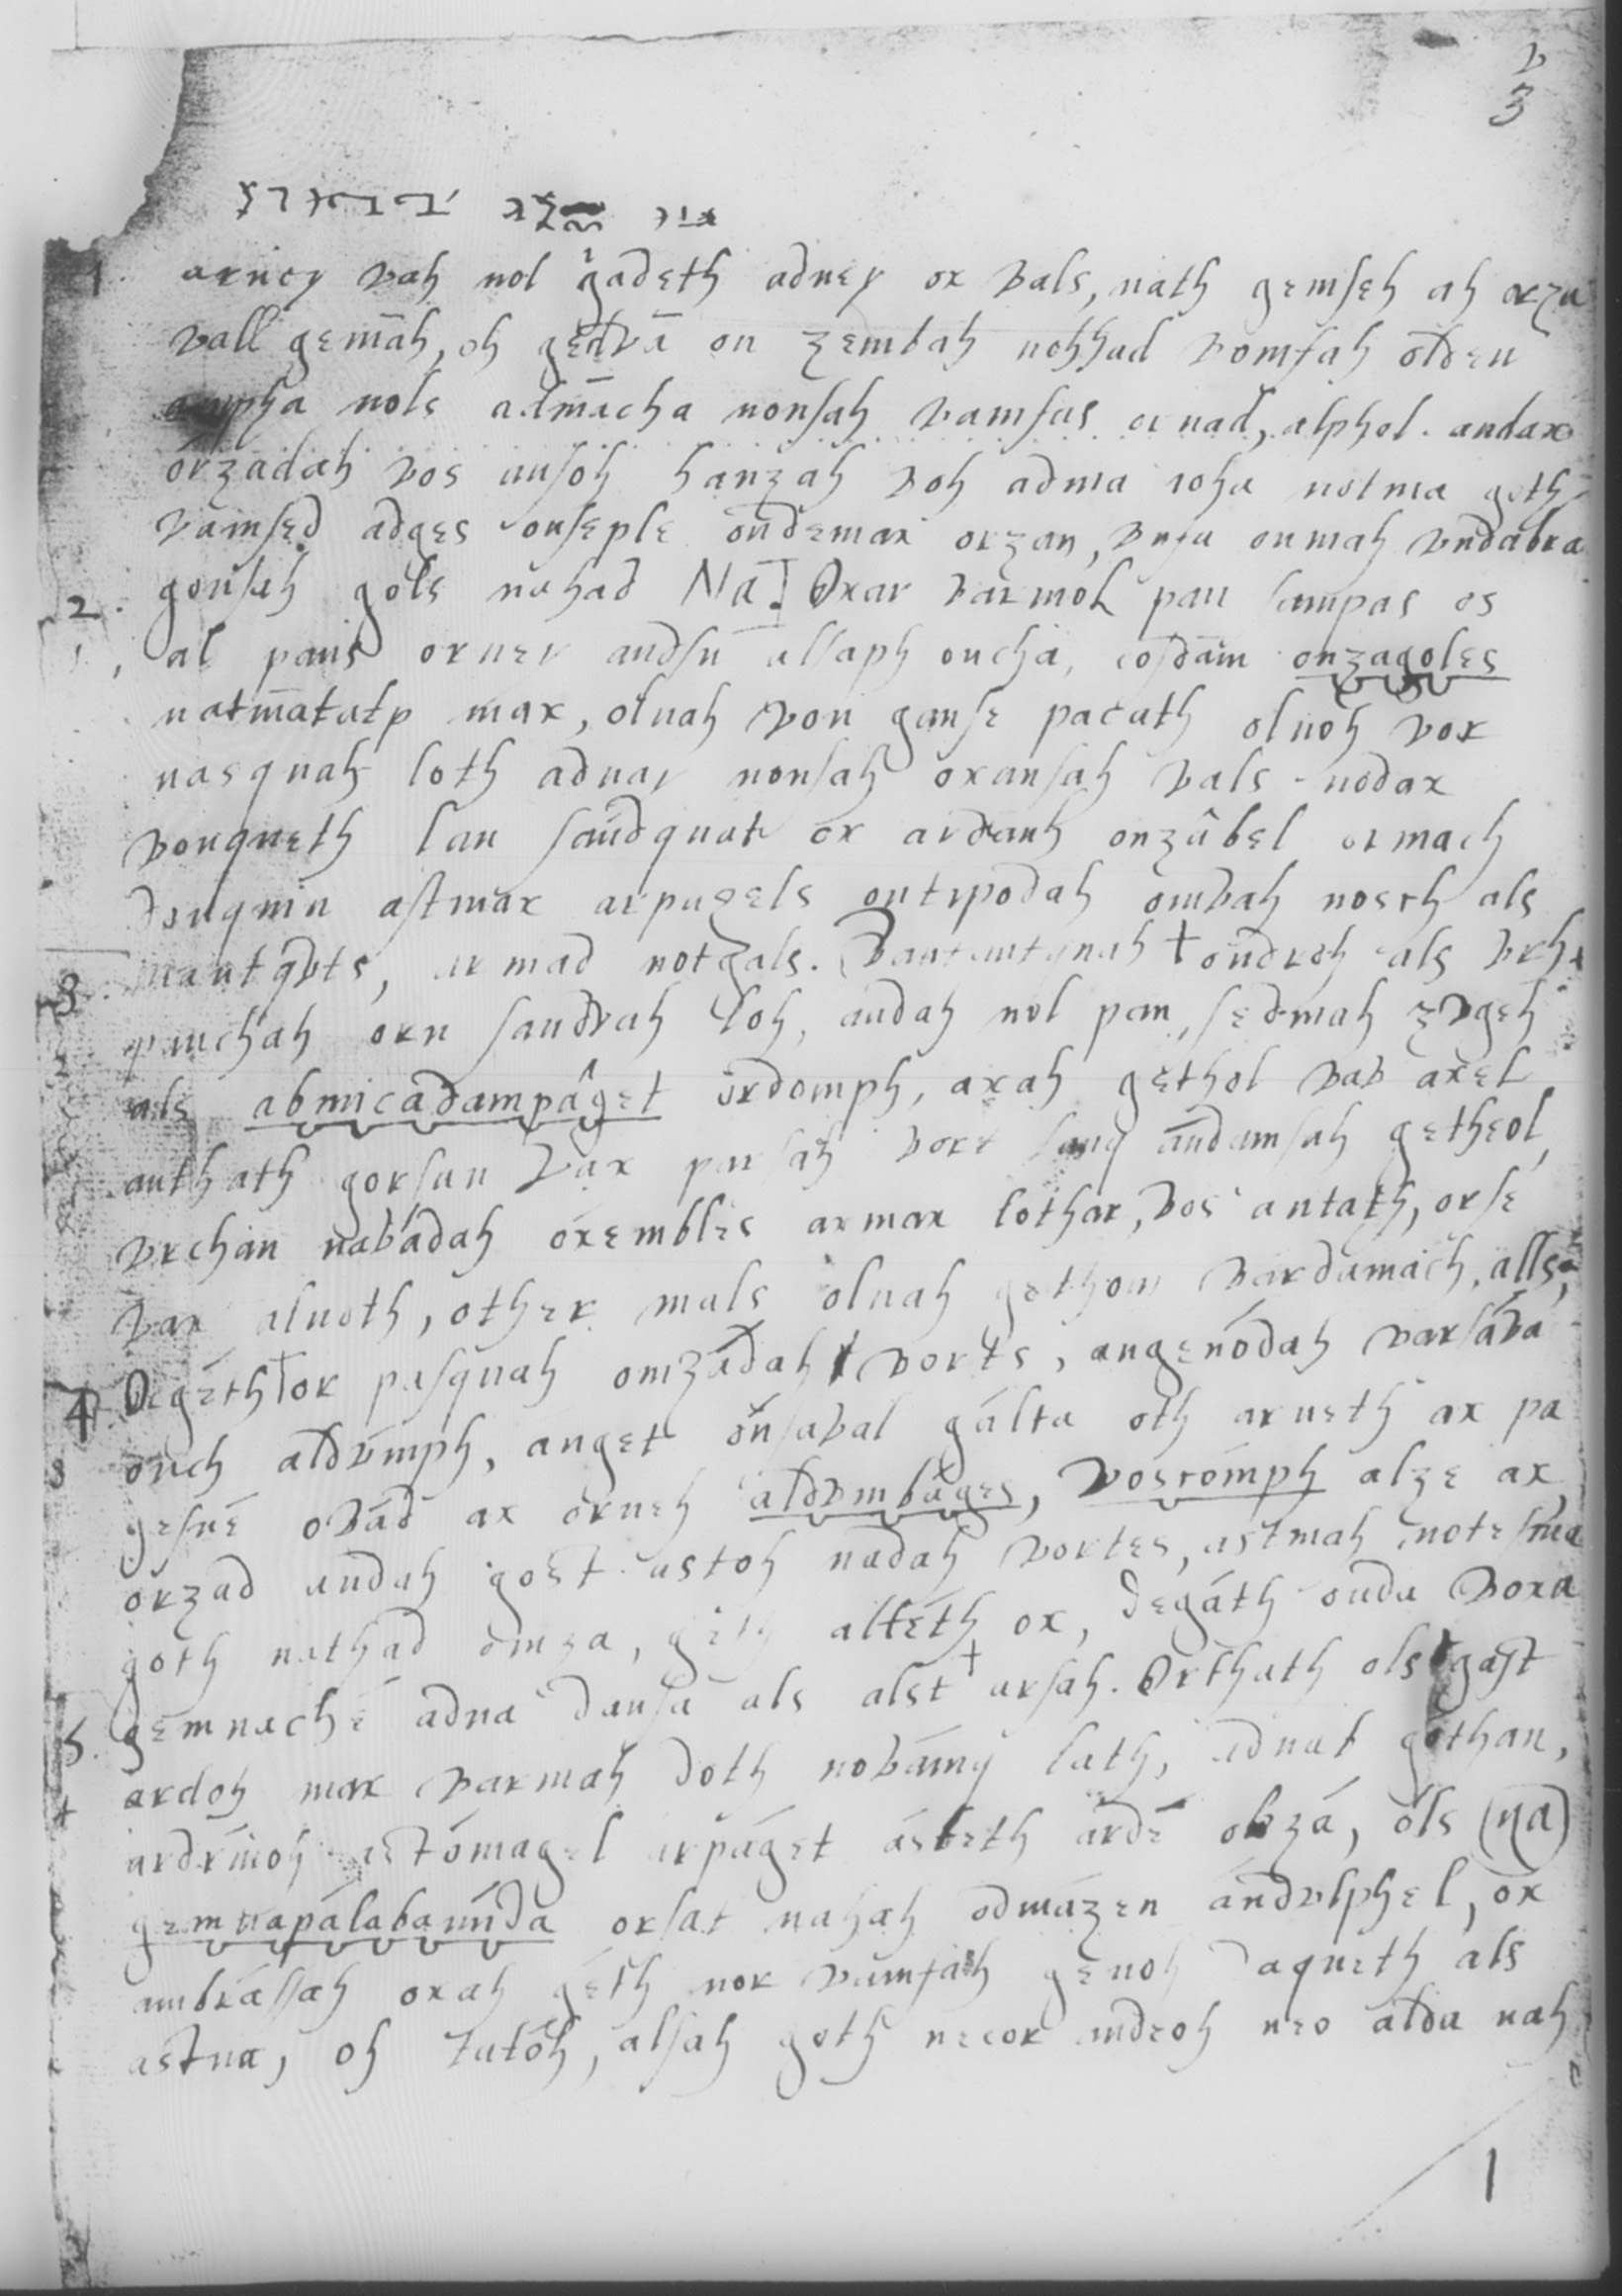 1. arney vah nol gadeth adney ox vals, nath gemseh ah orza
vall gemāh, oh gedvā on zembah nohhad vomfah olden
ampha nols admācha nonsah vamfas ornad, alphol. andax
orzadah vos ansoh hanzah voh adma ioha notma goth
vamsed adges onseple ondemax orzan, vnfa onmah vndabra
gonsah gols nahad Na.
2. Oxar varmol pan sampas os
al pans orney andsu alsaph oucha, cosdām onzagoles
natmātatp max, olnah von ganse pacath olnoh vor
nasquah loth adnay nonsah oxansah vals nodax
vonqueth lan sandquat ox ardanh onzâbel ormach
donqmin astmax arpagels ontipodah ombah nosch als
mantqvts, armad notgals.
3. Vantantquah † ondroh als vrh
panchah orn sandvah loh, andah nol pan, sedmah zvgeh
als abmicadampâget ordomph, axah gethol vav axel
anthath gorsan vax parsah vort lanq andamsah getheol,
vrchan nabadah oxembles armax lothar, vos antath, orse
vax alnoth, other mals olnah gethom vardamach, alls,
4 Degeth † or pasquah omzadah vorts, angenodah varsava
onch aldvmph, anget onsaval galta oth arneth ax pa
gesne ovad ax orneh aldvmbâges, vosromph alze ax
orzad andah gost astoh nadah vortes, astmah notesma
goth nathad omza, geth alteth ox, degath onda voxa
gemnache adna dansa als alst † arsah.
5. Orthath ols gast
ardoh max varmah doth novamq lath, adnat gothan,
ardrinoh astomagel arpaget asbeth arde obzá, ols (na)
gemnapálabamida orsat nahah odmazen andvlphel, ox
ambrassah oxah geth nor vamfah genoh daqueth als
astna, oh tatoh, alsah goth necor andeoh neo alda nah
1